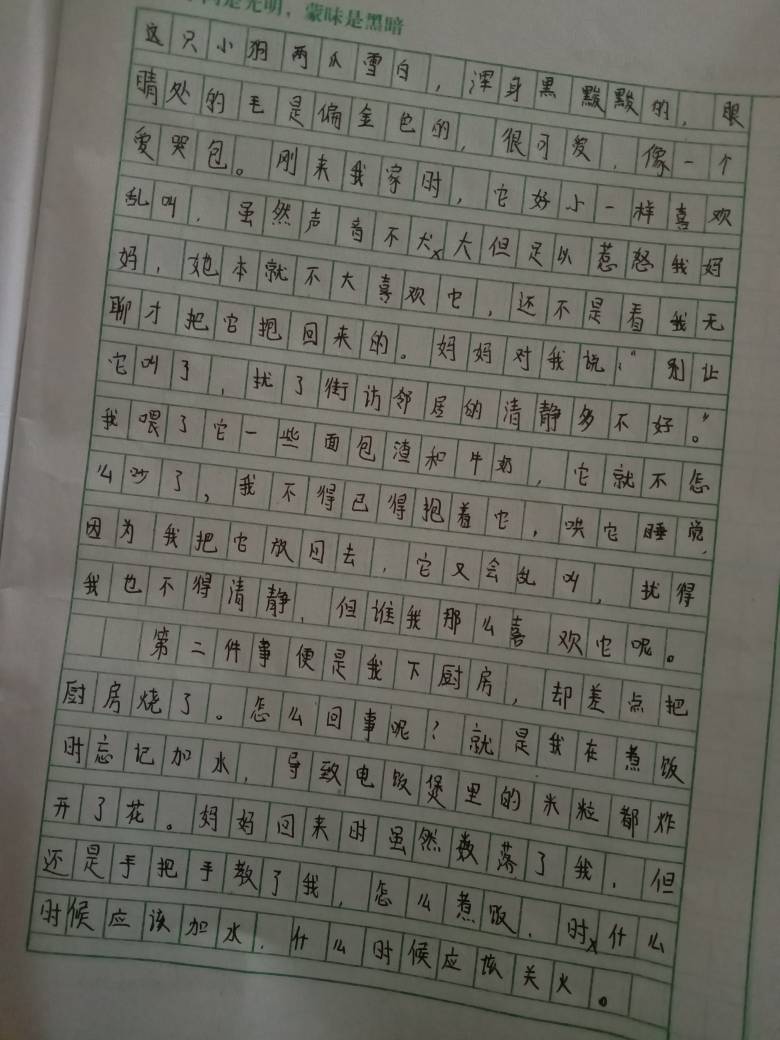 是光明，蒙昧是黑暗
这只小狗两爪雪白，浑身黑黢黢的，眼
睛处的毛是偏金色的，很可爱，像一个
爱哭包。刚来我家时，它好小一样喜欢
乱叫，虽然声音不大但足以惹怒我妈
妈，她本就不大喜欢它，还不是看我无
聊才把它抱回来的。妈妈对我说：“别让
它叫了，扰了街访邻居的清静多不好。”
我喂了它一些面包渣和牛奶，它就不怎
么吵了，我不得已得抱着它，哄它睡觉，
因为我把它放回去，它又会乱叫，扰得
我也不得清静，但谁我那么喜欢它呢。
第二件事便是我下厨房，却差点把
厨房烧了。怎么回事呢？就是我在煮饭
时忘记加水，导致电饭煲里的米粒都炸
开了花。妈妈回来时虽然数落了我，但
还是手把手教了我，怎么煮饭，什么
时候应该加水，什么时候应该关火。